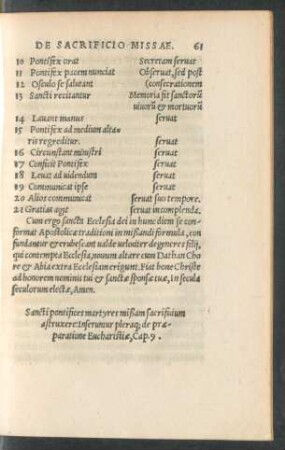 DE SACRIFICIO MISSAE. 61
10 Pontifex orat Secretam seruat
11 Pontifex pacem nunciat Obseruat, sed post
12 Osculo se salutant (consecrationem
13 Sancti recitantur Memoria fit sanctorũ
viuorũ & mortuorũ
14 Lauant manus seruat
15 Pontifex ad medium alta-
ris regreditur. seruat
16 Circunstant ministri seruat
17 Conficit Pontifex seruat
18 Leuat ad uidendum seruat
19 Communicat ipse seruat
20 Alios communicat seruat suo tempore.
21 Gratias agit seruat in complenda.
Cum ergo sancta Ecclesia dei in hunc diem se con-
format Apostolicæ traditioni in missandi formula, con
fundantur & erubescant ualde uelociter degeneres filij,
qui contempta Ecclesia, nouum altare cum Dathan Cho
re & Abia extra Ecclesiam erigunt. Fiat bone Christe
ad honorem nominis tui & sanctæ sponsæ tuæ, In secula
seculorum electæ, Amen.
Sancti pontifices martyres missam sacrificium
astruxere: Inseruntur pleraq; de præ-
paratione Eucharistiæ, Cap. 9.